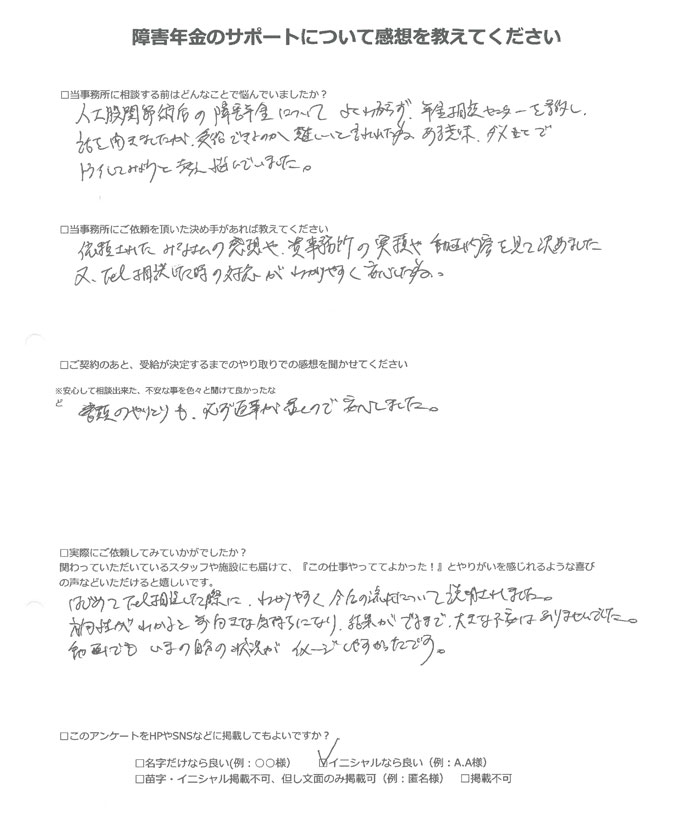 障害年金のサポートについて感想を教えてください
□当事務所に相談する前はどんなことで悩んでいましたか？
人工股関節術后の障害年金について よくわからず、年金相談センターを予約し、
話を聞きましたが、受給できるのか難しいと言われたため、ある意味、ダメ元で
トライしてみようと 悩んでいました。
□当事務所にご依頼を頂いた決め手があれば教えてください
依頼された みなさんの感想や、貴事務所の実績や動画内容を見て決めました
又、Tel相談した時の対応が わかりやすく安心したため。
□ご契約のあと、受給が決定するまでのやり取りでの感想を聞かせてください
※安心して相談出来た、不安な事を色々と聞けて良かったな
ど
書類のやりとりも、必ず返事が ので安心しました。
□実際にご依頼してみていかがでしたか？
関わっていただいているスタッフや施設にも届けて、『この仕事やっててよかった！』とやりがいを感じれるような喜び
の声などいただけると嬉しいです。
はじめてTel相談した際に、わかりやすく 今后の流れについて説明されました。
方向性がわかると 前向きな気持ちになり、結果がでるまで、大きな不安はありませんでした。
動画でも いまの自分の状況が イメージしやすかったです。
□このアンケートをHPやSNSなどに掲載してもよいですか？
□名字だけなら良い(例：〇〇様） ☑イニシャルなら良い（例：A.A様）
□苗字・イニシャル掲載不可、但し文面のみ掲載可（例：匿名様） □掲載不可